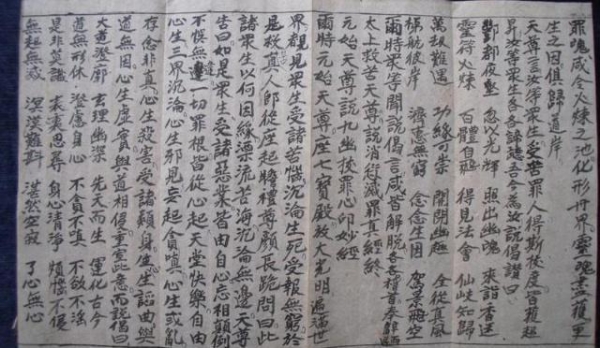 罪魂咸令火練之池化形丹界靈魂𦫵蔭更
生之因催歸道岸
天尊言汝等眾生受苦罪人得斯拔度皆獲超
昇汝等眾生各各歸聽吾今為汝說偈讚曰
酆都夜壑 忽以光輝 照出幽魂 來詣香廷
靈符火練 百體自飛 得見法會 仙岐知歸
萬劫難遇 功緣可崇 開闡幽趣 全從真風
梯航彼岸 濟憲無窮 念念生因 駕景飛空
爾時眾等聞說偈言咸皆解脫各各稽首奉辭而退
太上救苦天尊說消愆滅罪真經終
元始天尊說九幽拔罪心印妙經
爾時元始天尊座七寶殿放大光明遍福世
界觀見眾生受諸苦惱沉淪生死受報無窮於
是救真人即從座起瞻禮尊顏長跪問曰此
諸眾生以何因緣漂流苦海沉淪無邊天尊
告曰如是眾生受諸惡業皆由自心忘相顛倒
不悞無邊一切罪根皆從心起天堂快樂自由
心生三界沉淪心生邪見妄起貪嗔心生或亂
存念非真心生殺害受諸類身心生謟曲與
道無因心生虛實與道相侵重宣此意而說偈曰
大道澄廓 玄理幽深 先天而生 運化古今
道無形體 澄慮身心 不貪不嗔 不欲不淫
是非莫識 哀哀思尋 身心清淨 煩惱不侵
無起無滅 溟漠難斟 湛然空寂 了心無心